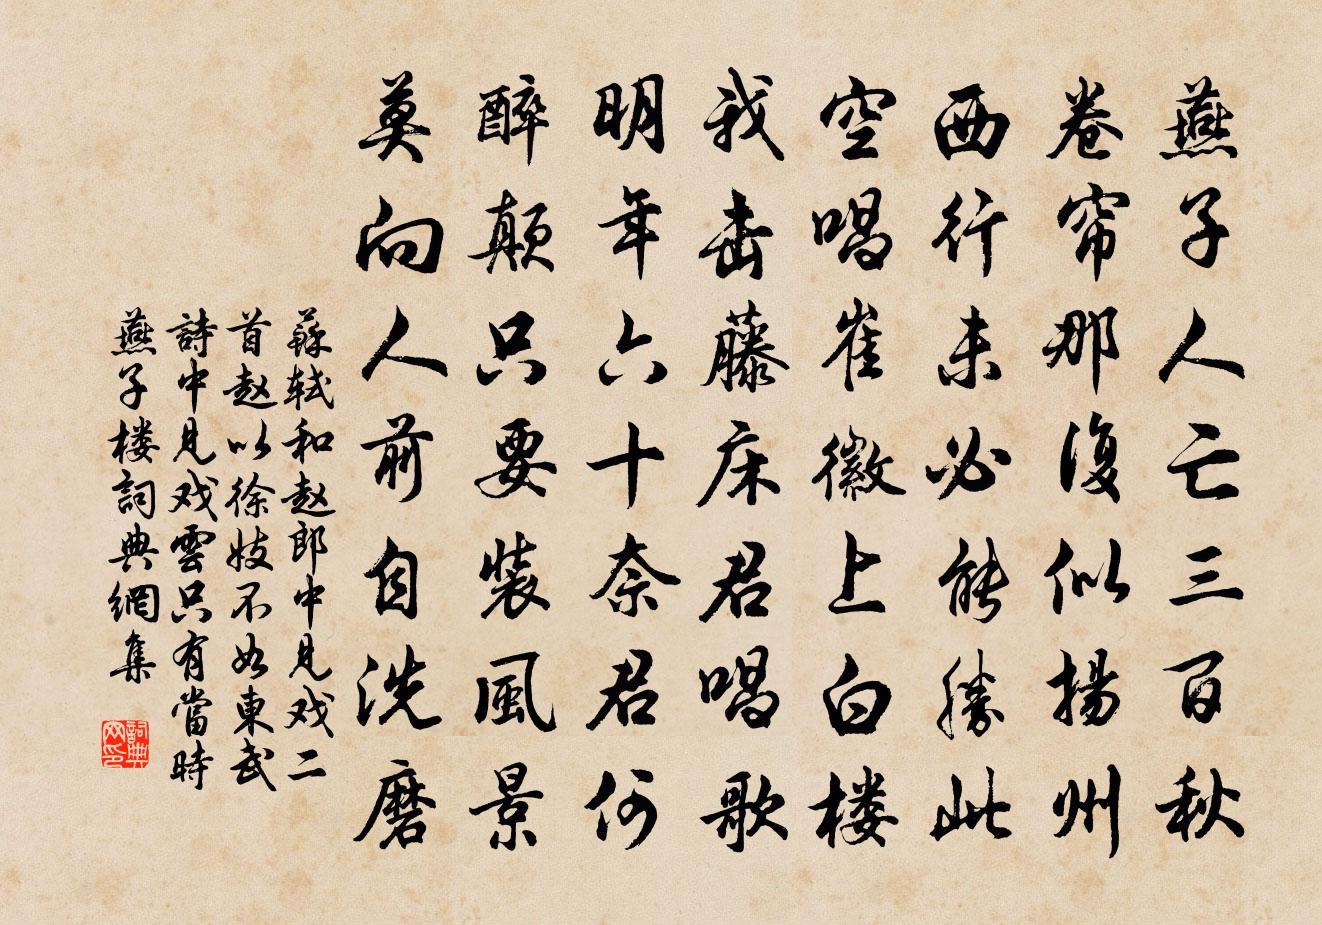 燕子人亡三百秋
卷帘那復似揚州
西行未必能勝此
空唱崔徽上白楼
我击藤床君唱歌
明年六十奈君何
醉颠只要装風景
莫向人前自洗磨
蘇轼和赵郎中見戏二
首赵以徐妓不如東武
詩中見戏雲只有當時
燕子楼詞典網集
詞典
网印